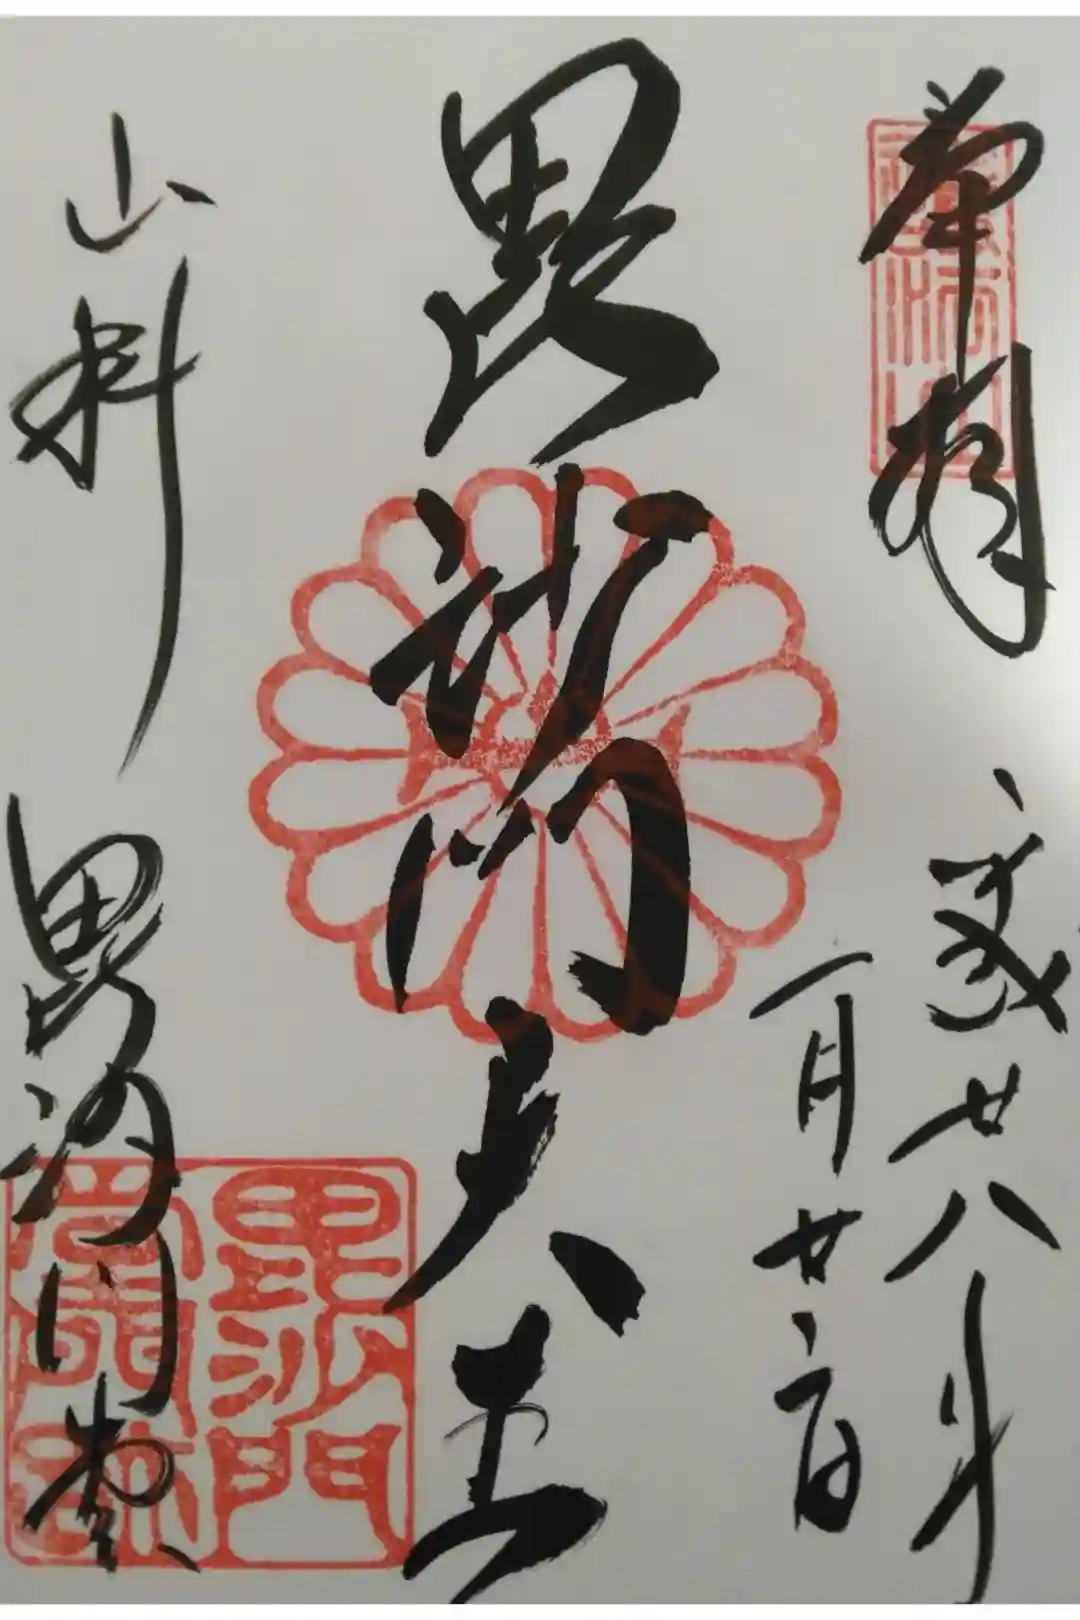 奉拝
平成廿八年
一月廿六日
毘沙門天王
山科
毘沙門堂
毘沙門
堂